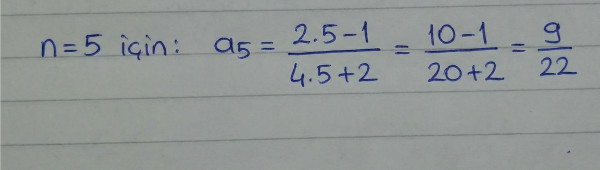 n=5 için: a₅ = \frac{2.5-1}{4.5+2} = \frac{10-1}{20+2} = \frac{9}{22}